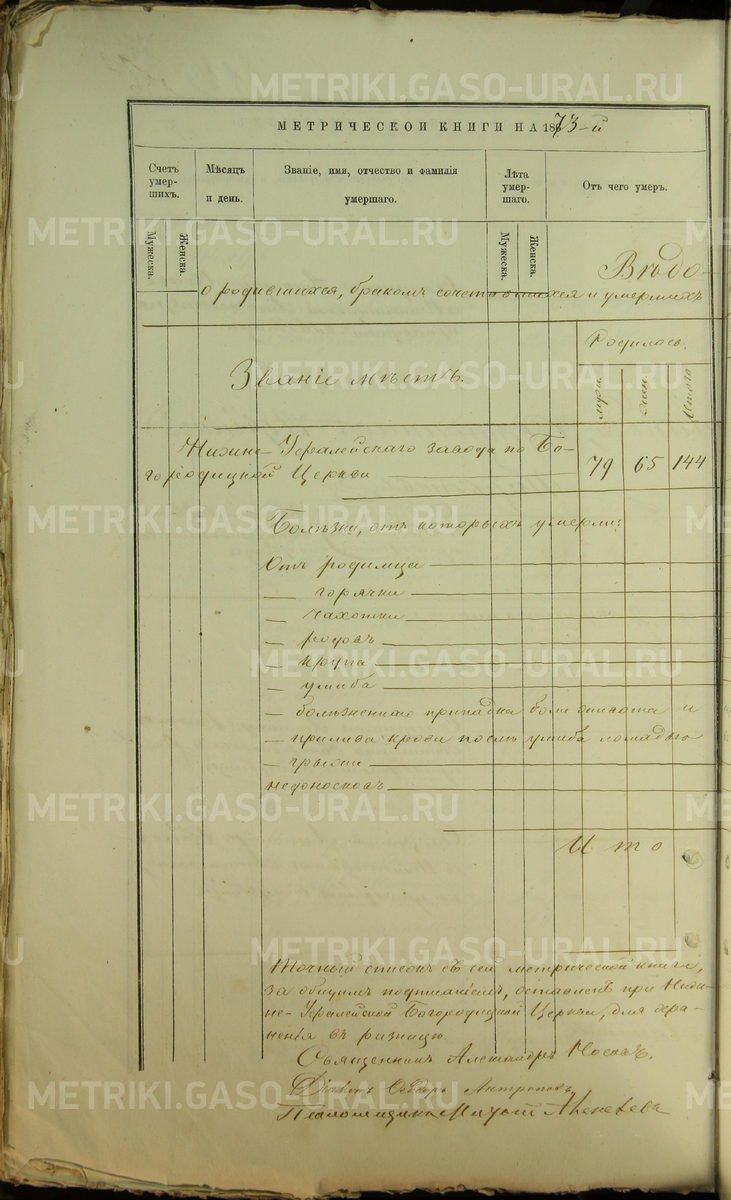 МЕТРИЧЕСКОЙ КНИГИ НА 1873-й
Счетъ умер-шихъ.
Мѣсяцъ и день.
Званіе, имя, отчество и фамилія умершаго.
Лѣта умер-шаго.
Отъ чего умеръ.
Мужеска.
Женска.
Мужеска.
Женска.
Вѣдо-
о родившихся, бракомъ сочетавшихся и умершихъ
Родилось.
Званіе мѣстъ.
муж.
жен.
Итого
Нижне-Уфалейскаго завода по Бо-
городицкой Церкви
79 65 144
Болѣзни, отъ которыхъ умерли:
Отъ родимца
— горячки
— чахотки
— родовъ
— крупа
— ушиба
— болѣзненнаго припадка боли живота и
— прилива крови послѣ ушиба лошадью
— грыжи
недоносковъ
Ито
Точный списокъ съ сей метрической книги,
за общимъ подписаніемъ, оставленъ при Ниж-
не-Уфалейской Богородицкой Церкви, для хра-
ненія въ ризницѣ.
Священникъ Александръ Носовъ.
Діаконъ Ѳедоръ Антроповъ
Псаломщикъ Алексѣевъ
METRIKI.GASO-URAL.RU